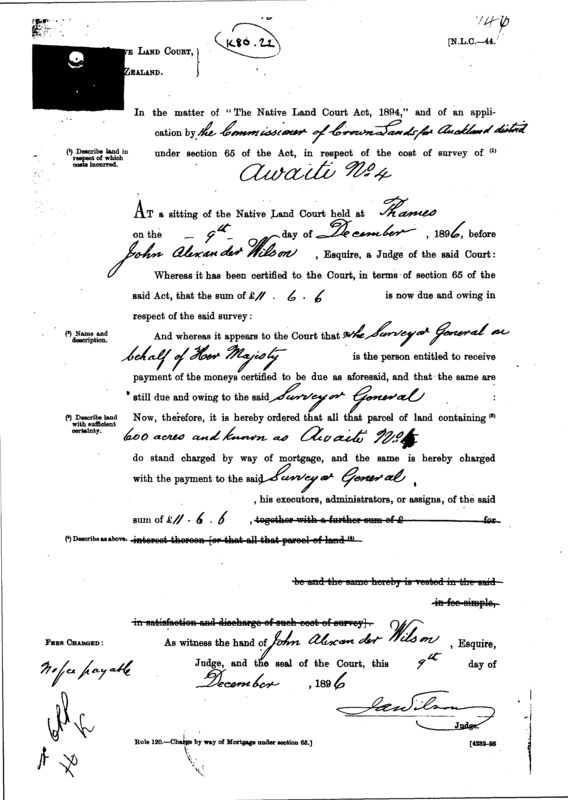 K80.22
146
[N.L.C.—44.
VE LAND COURT,
ZEALAND.
In the matter of "The Native Land Court Act, 1894," and of an appli-
cation by the Commissioner of Crown Lands for Auckland district
(1) Describe land in respect of which costs incurred.
under section 65 of the Act, in respect of the cost of survey of (1)
Awaiti No. 4
AT a sitting of the Native Land Court held at Thames
on the 9th day of December, 1896, before
John Alexander Wilson, Esquire, a Judge of the said Court:
Whereas it has been certified to the Court, in terms of section 65 of the
said Act, that the sum of £11 . 6 . 6 is now due and owing in
respect of the said survey:
(2) Name and description.
And whereas it appears to the Court that the Surveyor General on
behalf of Her Majesty is the person entitled to receive
payment of the moneys certified to be due as aforesaid, and that the same are
still due and owing to the said Surveyor General :
(3) Describe land with sufficient certainty.
Now, therefore, it is hereby ordered that all that parcel of land containing (3)
600 acres and known as Awaiti No.
do stand charged by way of mortgage, and the same is hereby charged
with the payment to the said Surveyor General,
, his executors, administrators, or assigns, of the said
sum of £11 . 6 . 6 , together with a further sum of £ for
(4) Describe as above.
interest thereon [or that all that parcel of land (4)
be and the same hereby is vested in the said
in fee-simple,
in satisfaction and discharge of such cost of survey].
FEES CHARGED:
As witness the hand of John Alexander Wilson, Esquire,
No fee payable
Judge, and the seal of the Court, this 9th day of
December, 1896
JAWilson
Judge.
Rule 120.—Charge by way of Mortgage under section 65.]
[4232-95